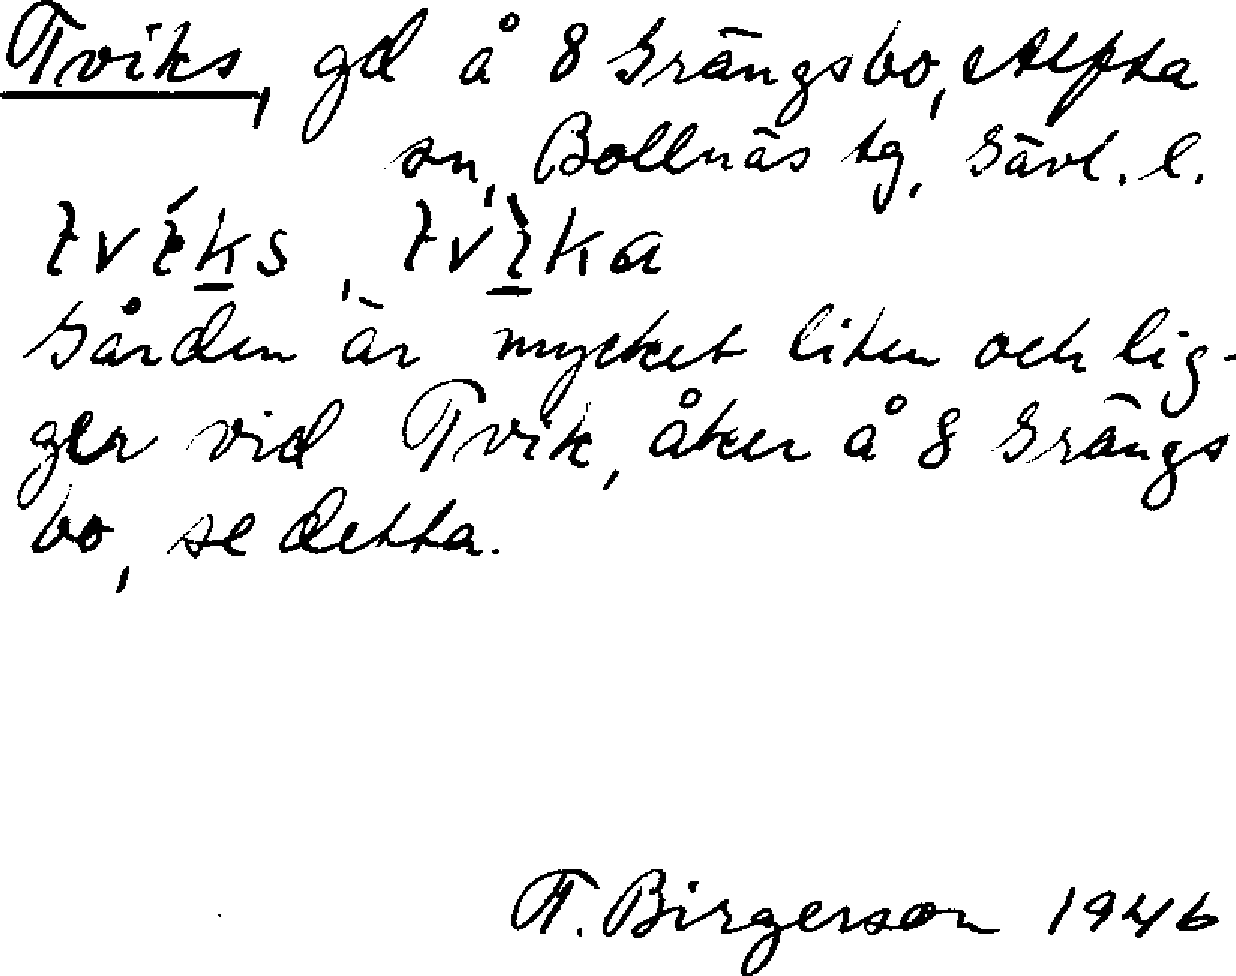 Tviks, gd å 8 Grängsbo, Alfta
sn, Bollnäs tg, Gävl. l.
Gården är mycket liten och lig-
ger vid Tvik, åker å 8 Grängs
bo, se detta.
T. Birgerson 1946